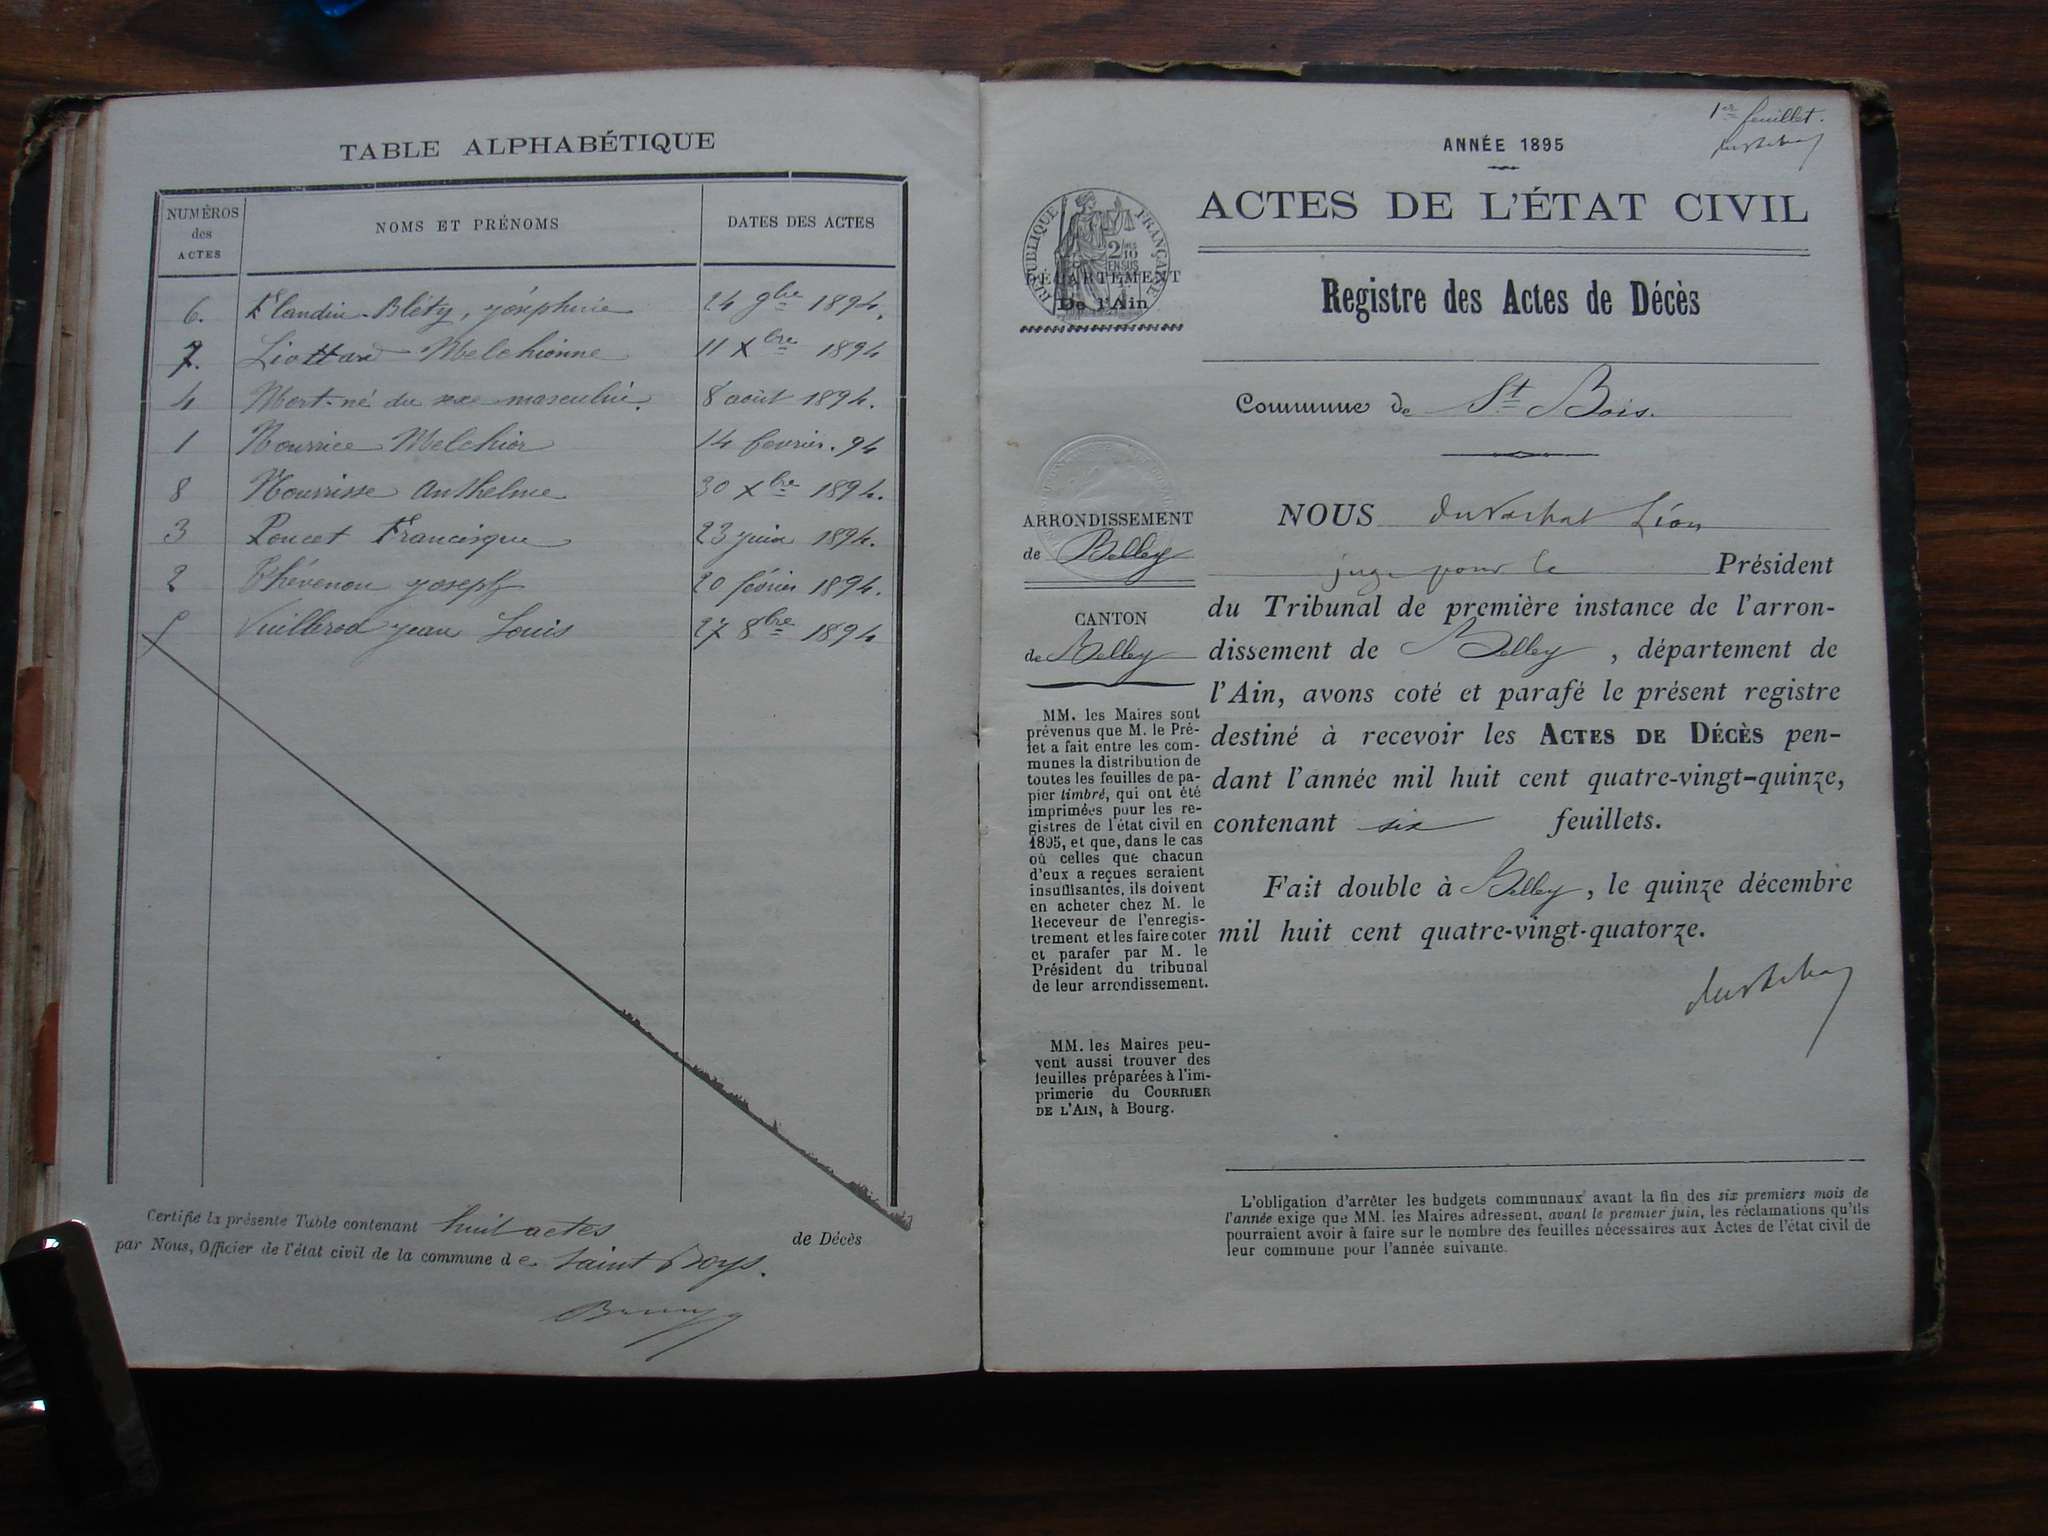 TABLE ALPHABÉTIQUE
NUMÉROS
des
ACTES
NOMS ET PRÉNOMS
DATES DES ACTES
6. Flandin-Bléty, joséphine 24 9bre 1894.
7. Liottard Melchionne 11 Xbre 1894
4 Mort-né du sexe masculin. 8 août 1894.
1 Nourrice Melchior 14 fevrier. 94
8 Nourrisse Anthelme 30 Xbre 1894.
3 Poncet Francisque 23 juin 1894.
2 Thévenon joseph 20 février 1894.
5 Vuillerod jean Louis 27 8bre 1894
Certifié la présente Table contenant huit actes de Décès
par Nous, Officier de l'état civil de la commune de Saint Boys.
1er feuillet.
ANNÉE 1895
ACTES DE L'ÉTAT CIVIL
RÉPUBLIQUE FRANÇAISE
2/10
EN SUS
DÉPARTEMENT
De l'Ain
Registre des Actes de Décès
Commune de St Bois.
ARRONDISSEMENT
de Belley
CANTON
de Belley
MM. les Maires sont
prévenus que M. le Pré-
fet a fait entre les com-
munes la distribution de
toutes les feuilles de pa-
pier timbré, qui ont été
imprimées pour les re-
gistres de l'état civil en
1895, et que, dans le cas
où celles que chacun
d'eux a reçues seraient
insuffisantes, ils doivent
en acheter chez M. le
Receveur de l'enregis-
trement et les faire coter
et parafer par M. le
Président du tribunal
de leur arrondissement.
MM. les Maires peu-
vent aussi trouver des
feuilles préparées à l'im-
primerie du COURRIER
DE L'AIN, à Bourg.
NOUS Duvachat Léon
juge pour le Président
du Tribunal de première instance de l'arron-
dissement de Belley, département de
l'Ain, avons coté et parafé le présent registre
destiné à recevoir les ACTES DE DÉCÈS pen-
dant l'année mil huit cent quatre-vingt-quinze,
contenant six feuillets.
Fait double à Belley, le quinze décembre
mil huit cent quatre-vingt-quatorze.
L'obligation d'arrêter les budgets communaux avant la fin des six premiers mois de
l'année exige que MM. les Maires adressent, avant le premier juin, les réclamations qu'ils
pourraient avoir à faire sur le nombre des feuilles nécessaires aux Actes de l'état civil de
leur commune pour l'année suivante.